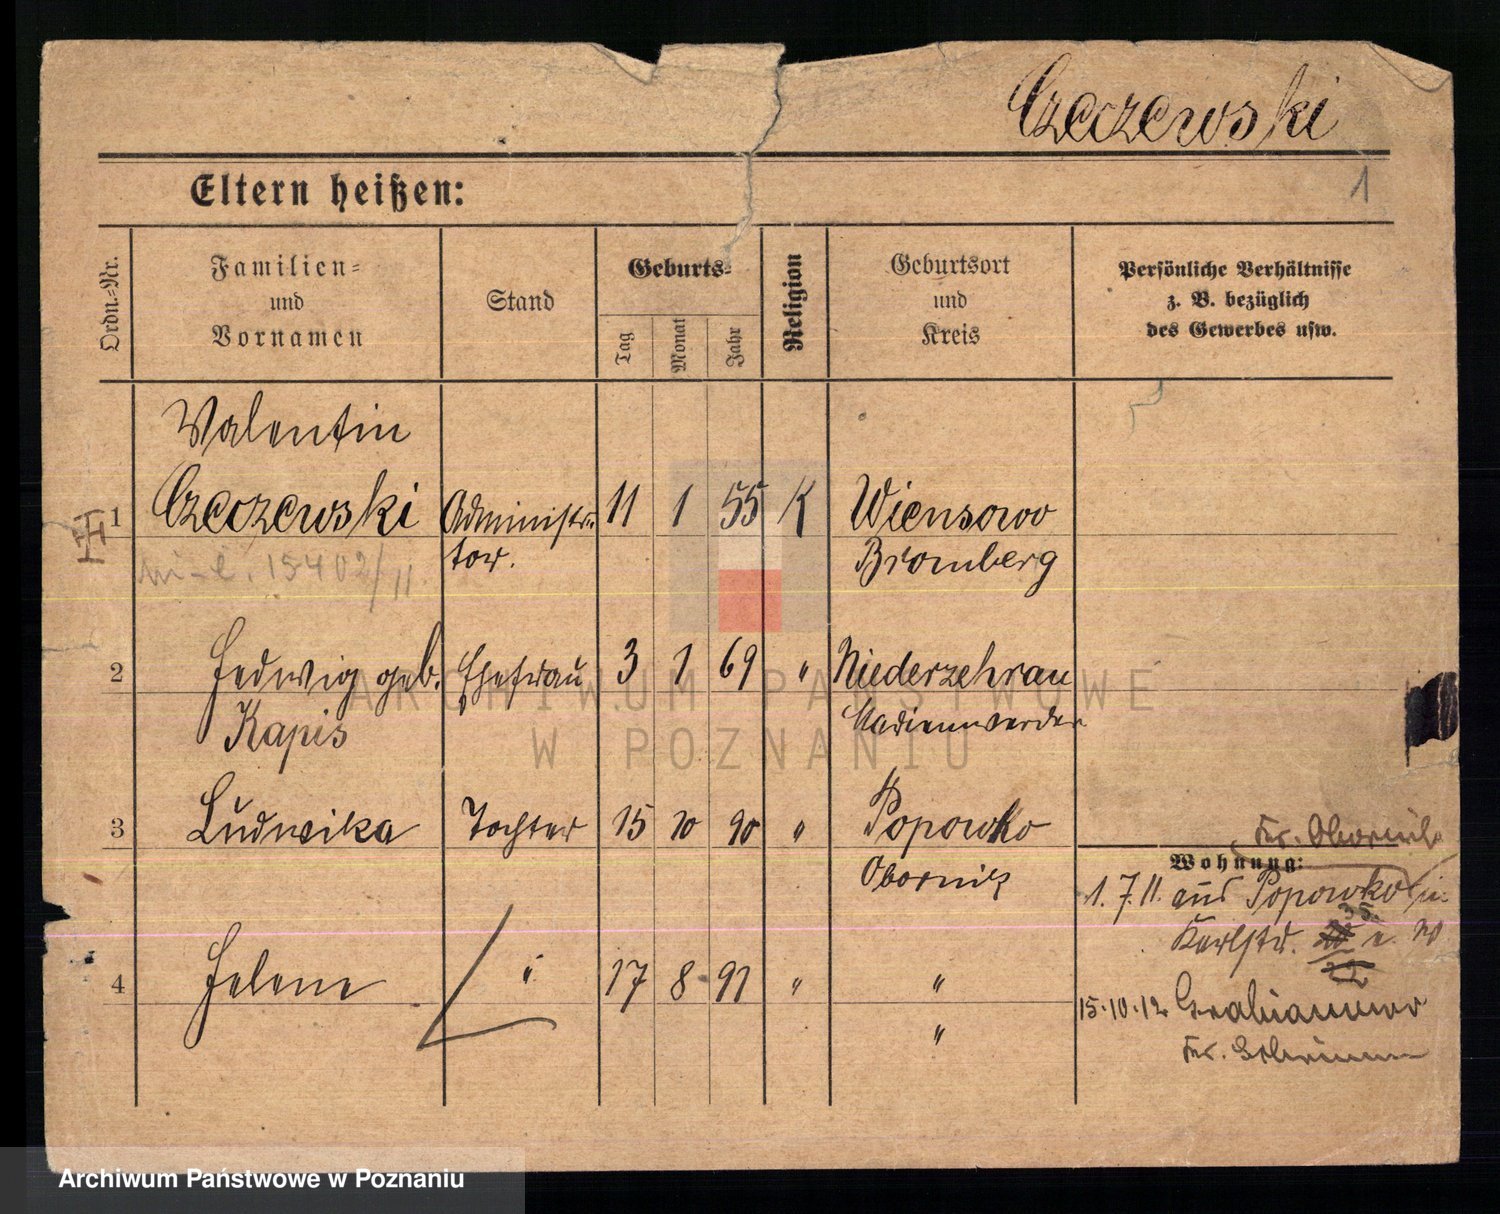 Czeczewski
1
Eltern heißen:
Ordn.-Nr.
Familien- und Vornamen
Stand
Geburts-
Tag
Monat
Jahr
Religion
Geburtsort und Kreis
Persönliche Verhältnisse
z. B. bezüglich
des Gewerbes usw.
Valentin
1 Czeczewski Administra- 11 1 55 K Wiensowo
tor. Bromberg
15402/11
2 Hedwig geb. Ehefrau 3 1 69 " Niederzehran
Kapis Marienwerder
3 Ludwika Tochter 15 10 90 " Popowko
Obornik
Kr. Obornik
Wohnung:
1.7.11. aus Popowko in
Karlstr.
4 Helene " 17 8 91 " "
"
15.10.12 Grabianowo
Kr. Schrimm
ARCHIWUM PAŃSTWOWE
W POZNANIU
Archiwum Państwowe w Poznaniu